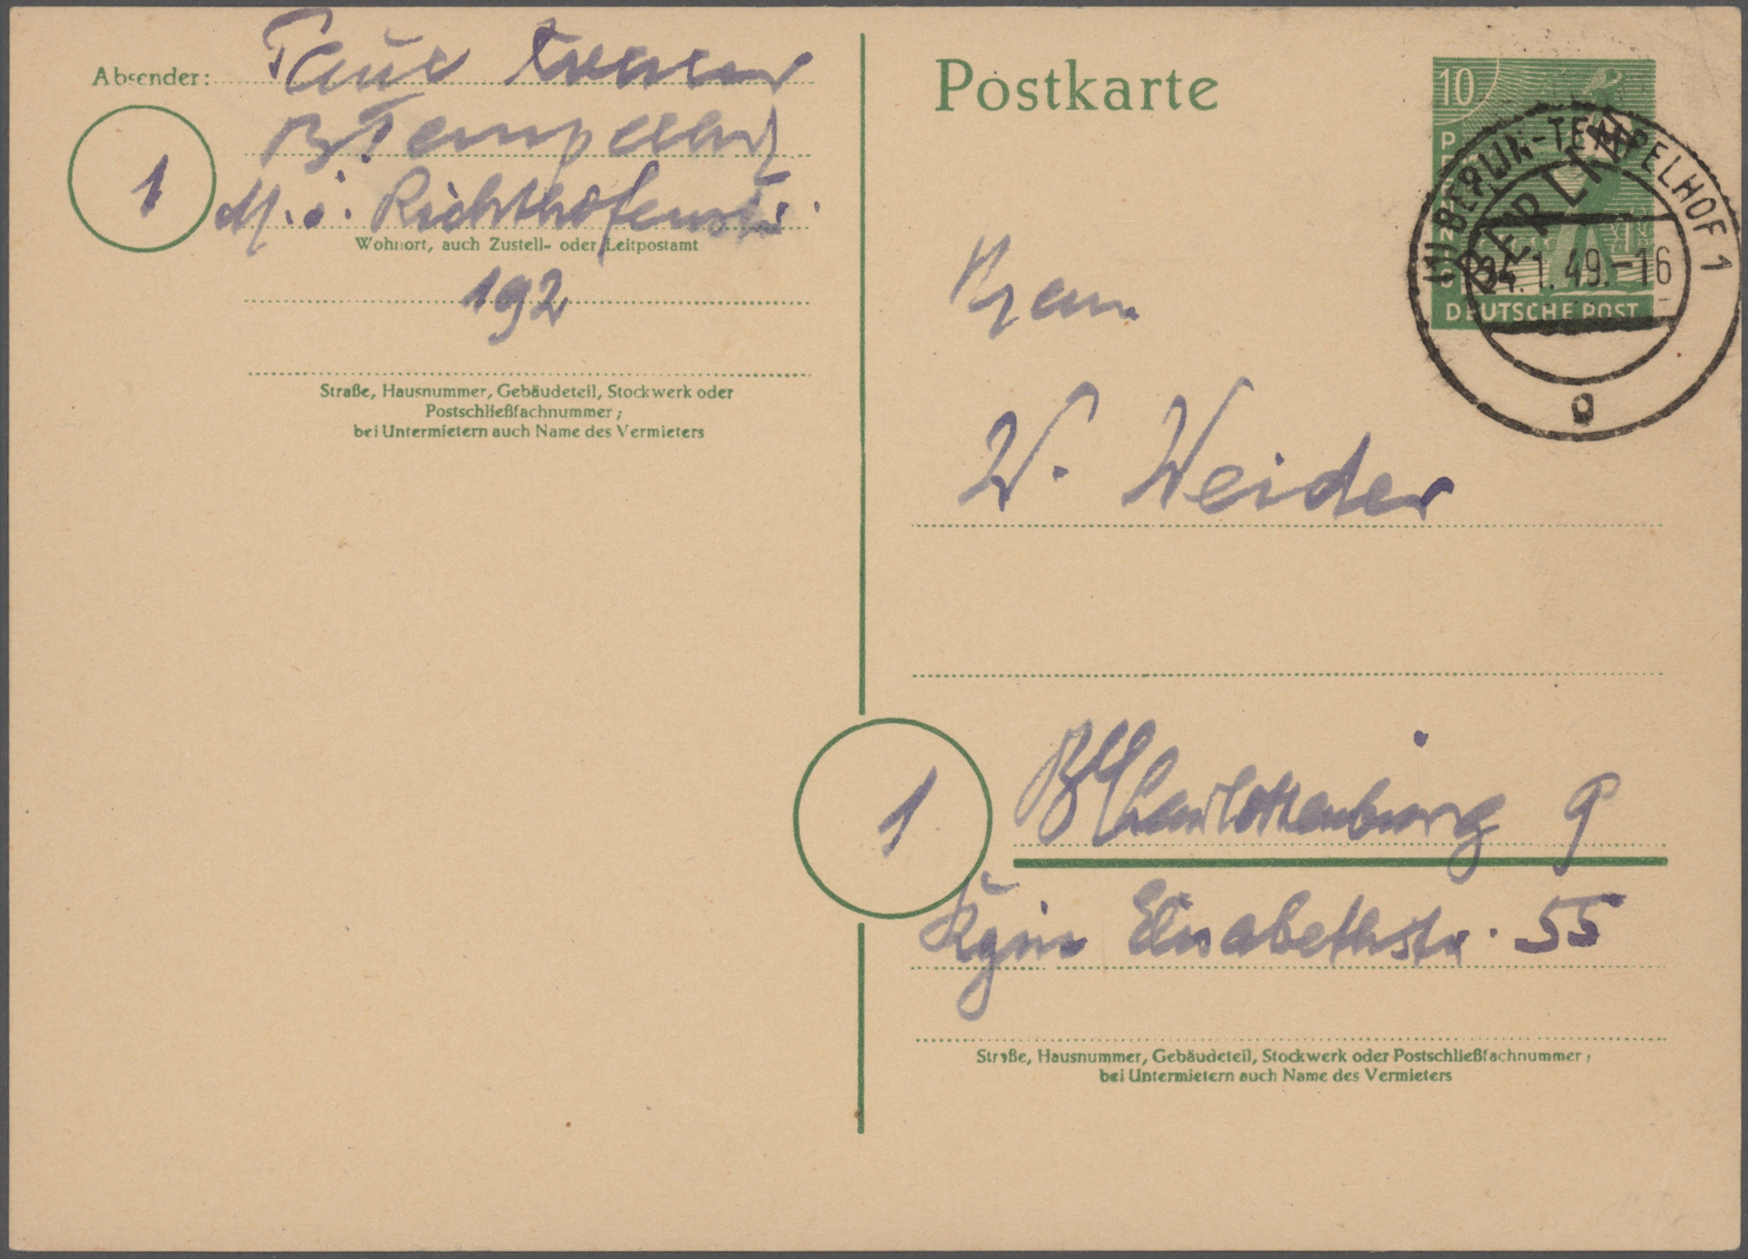 Absender: Paul
B Tempelhof
1
M. v. Richthofenstr.
Wohnort, auch Zustell- oder Leitpostamt
192
Straße, Hausnummer, Gebäudeteil, Stockwerk oder
Postschließfachnummer;
bei Untermietern auch Name des Vermieters
Postkarte
10
PFENNIG
BERLIN
DEUTSCHE POST
(1) BERLIN-TEMPELHOF 1
24.1.49.-16
g
Herrn
W. Weider
1
B Charlottenburg 9
Kgin Elisabethstr. 55
Straße, Hausnummer, Gebäudeteil, Stockwerk oder Postschließfachnummer;
bei Untermietern auch Name des Vermieters